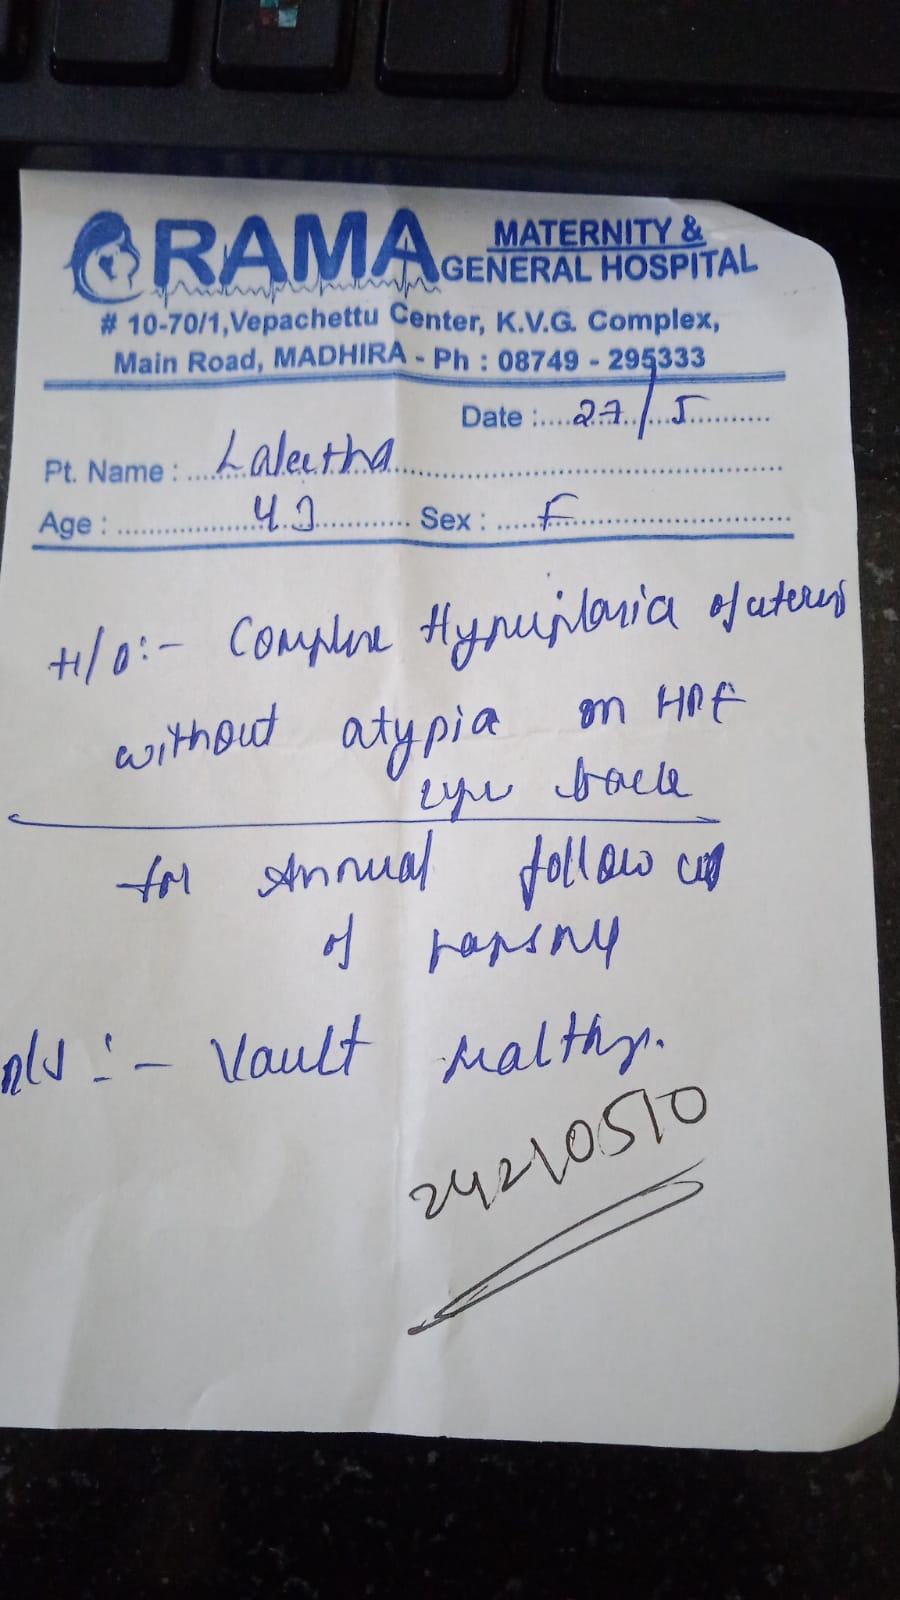 RAMA MATERNITY & GENERAL HOSPITAL
# 10-70/1,Vepachettu Center, K.V.G. Complex,
Main Road, MADHIRA - Ph : 08749 - 295333
Date : 27/5
Pt. Name : Laleetha
Age : 43 Sex : F
H/O:- Complex Hyperplasia of uterus
without atypia on HPE
back
for Annual follow up
of
:- Vault healthy.
24210510